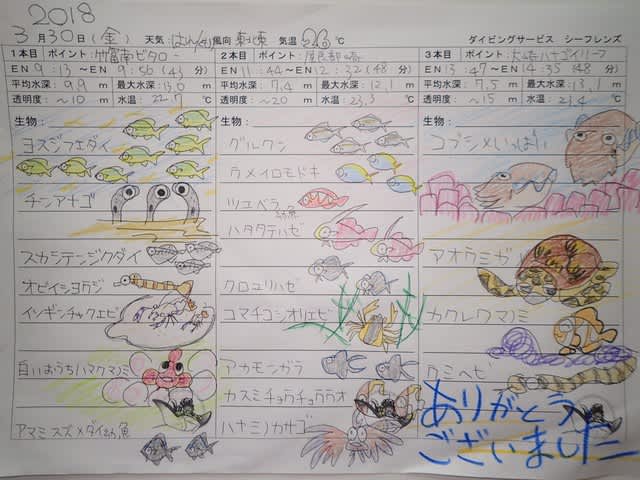 2018
3月30日(金) 天気:はれ 風向:東 気温 26℃ ダイビングサービス シーフレンズ
1本目 ポイント:竹富南ビタロー
EN 9:13～EN 9:56(43分)
平均水深:9.9m 最大水深:13.0m
透明度:～10m 水温:22.7℃
生物:
ヨスジフエダイ
チンアナゴ
スカシテンジクダイ
オビイシヨウジ
イソギンチャクエビ
白いおうちハマクマノミ
アマミスズメダイ幼魚
2本目 ポイント:
EN 11:44～EN 12:32(48分)
平均水深:7.4m 最大水深:12.1m
透明度:～20m 水温:23.3℃
生物:
グルクン
ラメイロモドキ
ツユベラ幼魚
ハタタテハゼ
クロユリハゼ
コマチコシオリエビ
アカモンガラ
カスミチョウチョウウオ
ハナミノカサゴ
3本目 ポイント:大崎ハナゴイリーフ
EN 13:47～EN 14:35(48分)
平均水深:7.5m 最大水深:13.1m
透明度:～15m 水温:23.4℃
生物:
コブシメいっぱい
アオウミガメ
カクレクマノミ
ウミヘビ
ありがとう
ございました